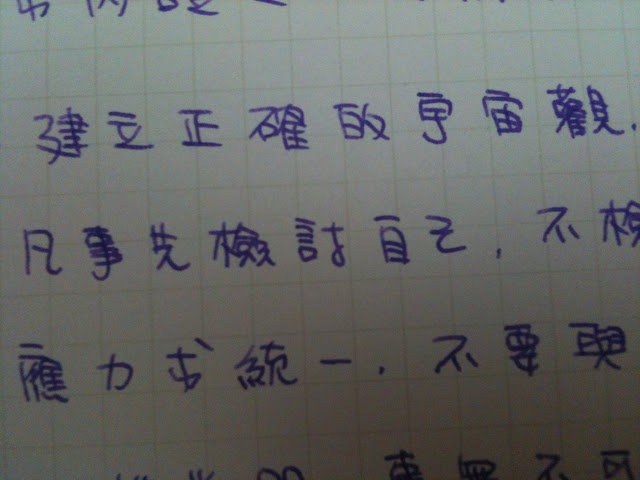 建立正確的宇宙觀.
凡事先檢討自己.不檢
應力求統一.不要與
事無不可